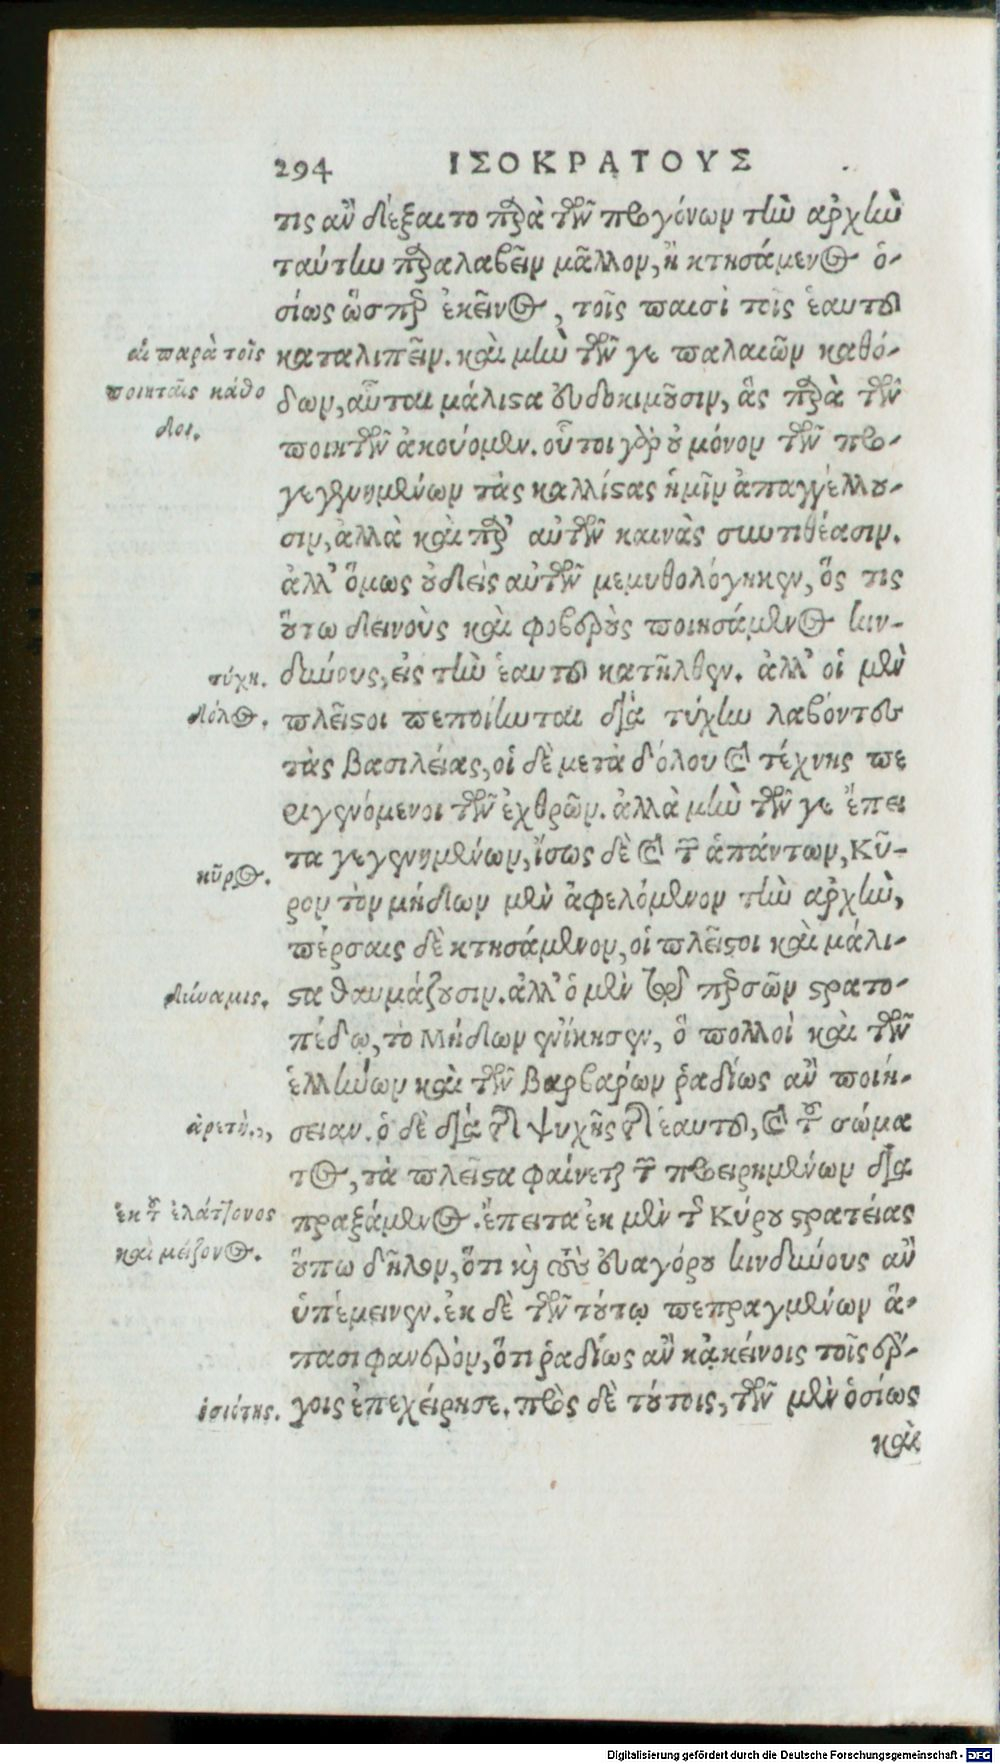 294 ΙΣΟΚΡΑΤΟΥΣ
τις ἂν δέξαιτο παρὰ τῶν προγόνων τὴν ἀρχὴν
ταύτην παραλαβεῖν μᾶλλον, ἢ κτησάμενος ὁ-
σίως ὥσπερ ἐκεῖνος, τοῖς παισὶ τοῖς ἑαυτοῦ
αἱ παρὰ τοῖς
καταλιπεῖν. καὶ μὴν τῶν γε παλαιῶν καθό-
ποιηταῖς κάθο
δων, αὗται μάλιστα εὐδοκιμοῦσιν, ἃς παρὰ τῶν
δοι.
ποιητῶν ἀκούομεν. οὗτοι γὰρ οὐ μόνον τῶν προ-
γεγενημένων τὰς καλλίστας ἡμῖν ἀπαγγέλλου-
σιν, ἀλλὰ καὶ παρ' αὐτῶν καινὰς συντιθέασιν.
ἀλλ' ὅμως οὐδεὶς αὐτῶν μεμυθολόγηκεν, ὅς τις
οὕτω δεινοὺς καὶ φοβεροὺς ποιησάμενος κιν-
τύχη.
δύνους, εἰς τὴν ἑαυτοῦ κατῆλθεν. ἀλλ' οἱ μὲν
δόλος.
πλεῖστοι πεποίηνται διὰ τύχην λαβόντες
τὰς βασιλείας, οἱ δὲ μετὰ δόλου καὶ τέχνης πε
ριγενόμενοι τῶν ἐχθρῶν. ἀλλὰ μὴν τῶν γε ἔπει
τα γεγενημένων, ἴσως δὲ καὶ τῶν ἁπάντων, Κῦ-
κῦρος.
ρον τὸν μήδων μὲν ἀφελόμενον τὴν ἀρχὴν,
πέρσαις δὲ κτησάμενον, οἱ πλεῖστοι καὶ μάλι-
δύναμις.
στα θαυμάζουσιν. ἀλλ' ὁ μὲν τῷ περσῶν στρατο-
πέδῳ, τὸ Μήδων ἐνίκησεν, ὃ πολλοὶ καὶ τῶν
ἑλλήνων καὶ τῶν βαρβάρων ῥαδίως ἂν ποιή-
ἀρετή.
σειαν. ὁ δὲ διὰ τῆς ψυχῆς τῆς ἑαυτοῦ, καὶ τοῦ σώμα
τος, τὰ πλεῖστα φαίνεται τῶν προειρημένων δια
ἐκ τοῦ ἐλάττονος
πραξάμενος. ἔπειτα ἐκ μὲν τῆς Κύρου στρατείας
καὶ μείζονος.
οὔπω δῆλον, ὅτι καὶ τοὺς εὐαγόρου κινδύνους ἂν
ὑπέμεινεν. ἐκ δὲ τῶν τούτῳ πεπραγμένων ἅ-
πασι φανερὸν, ὅτι ῥαδίως ἂν κἀκείνοις τοῖς ἔρ-
ὁσιότης.
γοις ἐπεχείρησε. πρὸς δὲ τούτοις, τῶν μὲν ὁσίως
καὶ
Digitalisierung gefördert durch die Deutsche Forschungsgemeinschaft - DFG